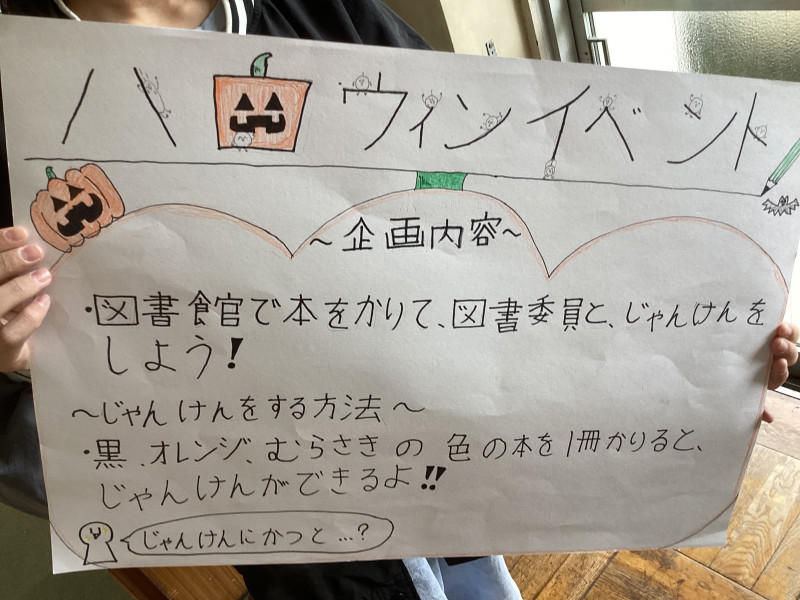 ハロウィンイベント
~企画内容~
・図書館で本をかりて、図書委員と、じゃんけんを
しよう!
~じゃんけんをする方法~
・黒、オレンジ、むらさきの色の本を1冊かりると、
じゃんけんができるよ!!
じゃんけんにかつと…?